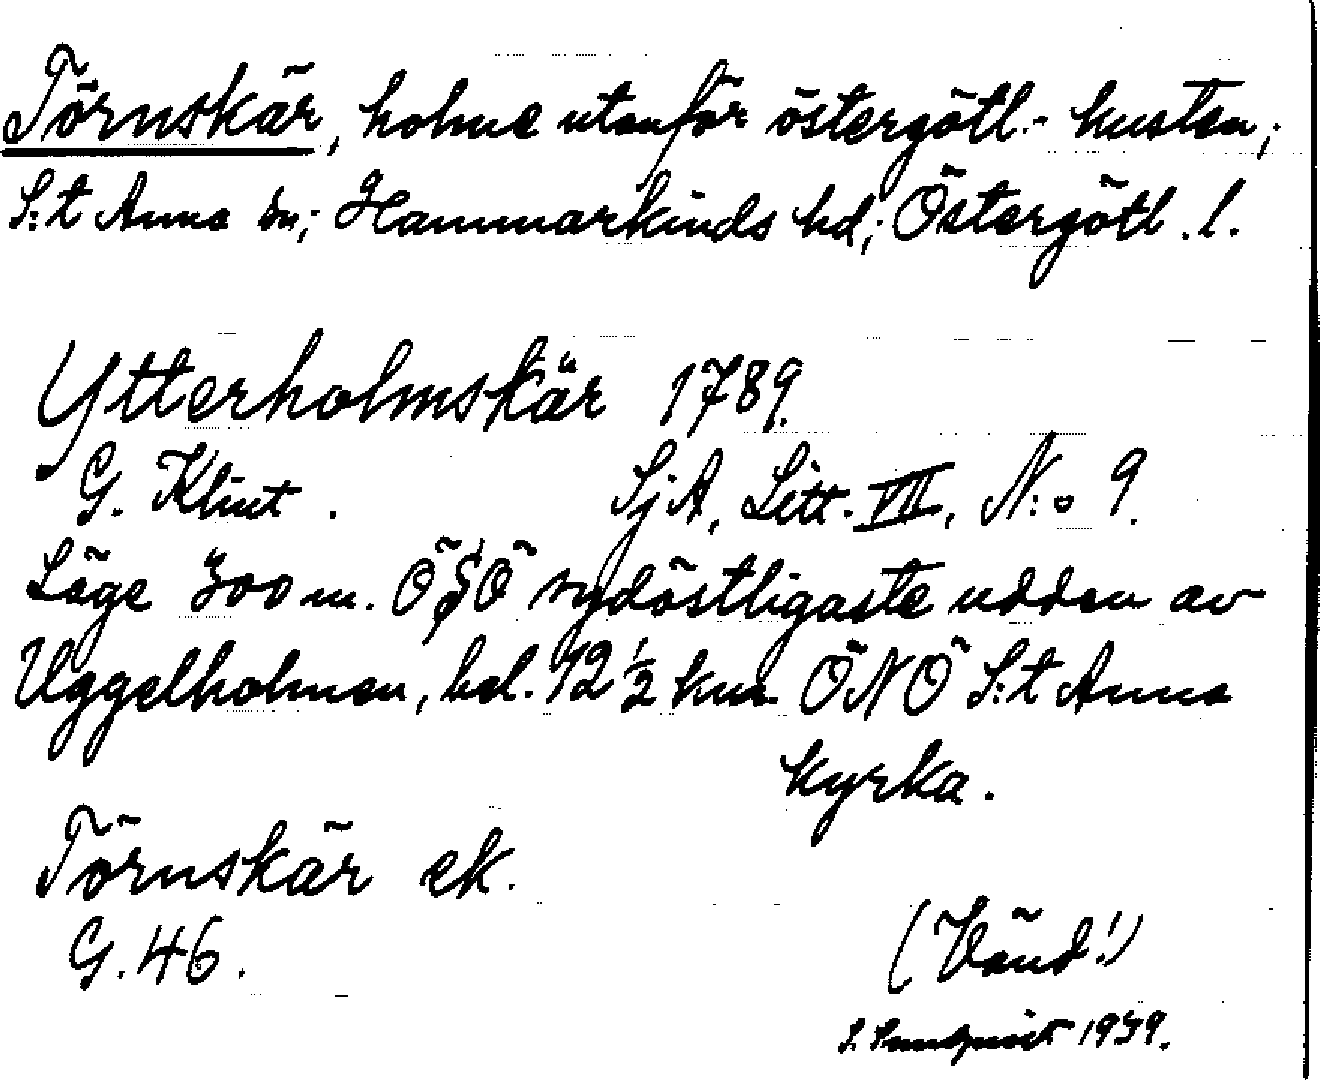 Törnskär, holme utanför östergötl.- kusten;
S:t Anna sn; Hammarkinds hd; Östergötl. l.
Ytterholmskär 1789.
G. Klint. SjA, Litt. VII, N:o 9.
Läge 300 m. ÖSÖ sydöstligaste udden av
Uggelholmen, bel. 12 1/2 km ÖNÖ S:t Anna
kyrka.
Törnskär ek.
G. 46.
(Vänd!)
S. 1939.